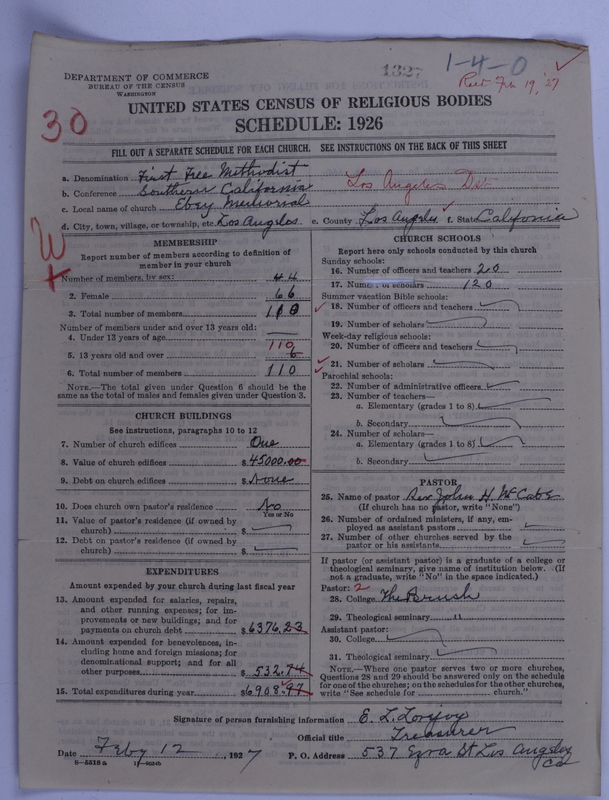 1327
1-4-0
DEPARTMENT OF COMMERCE
BUREAU OF THE CENSUS
WASHINGTON
Rec'd Feb 19, 27
UNITED STATES CENSUS OF RELIGIOUS BODIES
30
SCHEDULE: 1926
FILL OUT A SEPARATE SCHEDULE FOR EACH CHURCH. SEE INSTRUCTIONS ON THE BACK OF THIS SHEET
a. Denomination First Free Methodist
b. Conference Southern California Los Angeles Dist
c. Local name of church Ebey Memorial
d. City, town, village, or township, etc. Los Angeles. e. County Los Angeles f. State California
W
MEMBERSHIP
Report number of members according to definition of
member in your church
Number of members, by sex: 44
2. Female 66
3. Total number of members 110
Number of members under and over 13 years old:
4. Under 13 years of age
110
5. 13 years old and over 6
6. Total number of members 110
NOTE.—The total given under Question 6 should be
same as the total of males and females given under Question 3.
CHURCH BUILDINGS
See instructions, paragraphs 10 to 12
7. Number of church edifices One
8. Value of church edifices $45000.00
9. Debt on church edifices $None
10. Does church own pastor's residence No
Yes or No
11. Value of pastor's residence (if owned by
church) $
12. Debt on pastor's residence (if owned by
church) $
EXPENDITURES
Amount expended by your church during last fiscal year
13. Amount expended for salaries, repairs,
and other running expenses; for im-
provements or new buildings; and for
payments on church debt $6376.23
14. Amount expended for benevolences, in-
cluding home and foreign missions; for
denominational support; and for all
other purposes $532.74
15. Total expenditures during year $6908.97
CHURCH SCHOOLS
Report here only schools conducted by this church
Sunday schools:
16. Number of officers and teachers 20
17. Number of scholars 120
Summer vacation Bible schools:
18. Number of officers and teachers
19. Number of scholars
Week-day religious schools:
20. Number of officers and teachers
21. Number of scholars
Parochial schools:
22. Number of administrative officers
23. Number of teachers—
a. Elementary (grades 1 to 8)
b. Secondary
24. Number of scholars—
a. Elementary (grades 1 to 8)
b. Secondary
PASTOR
25. Name of pastor Rev John H. McCabe
(If church has no pastor, write "None")
26. Number of ordained ministers, if any, em-
ployed as assistant pastors
27. Number of other churches served by the
pastor or his assistants
If pastor (or assistant pastor) is a graduate of a college or
theological seminary, give name of institution below. (If
not a graduate, write "No" in the space indicated.)
Pastor: 2
28. College The Brush
29. Theological seminary "
Assistant pastor:
30. College
31. Theological seminary
NOTE.—Where one pastor serves two or more churches,
Questions 28 and 29 should be answered only on the schedule
for one of the churches; on the schedules for the other churches,
write "See schedule for church."
Signature of person furnishing information E. L. Lovejoy
Official title Treasurer
Date Feby 12, 1927 P. O. Address 537 Ezra St Los Angeles
Ca
8-5518a